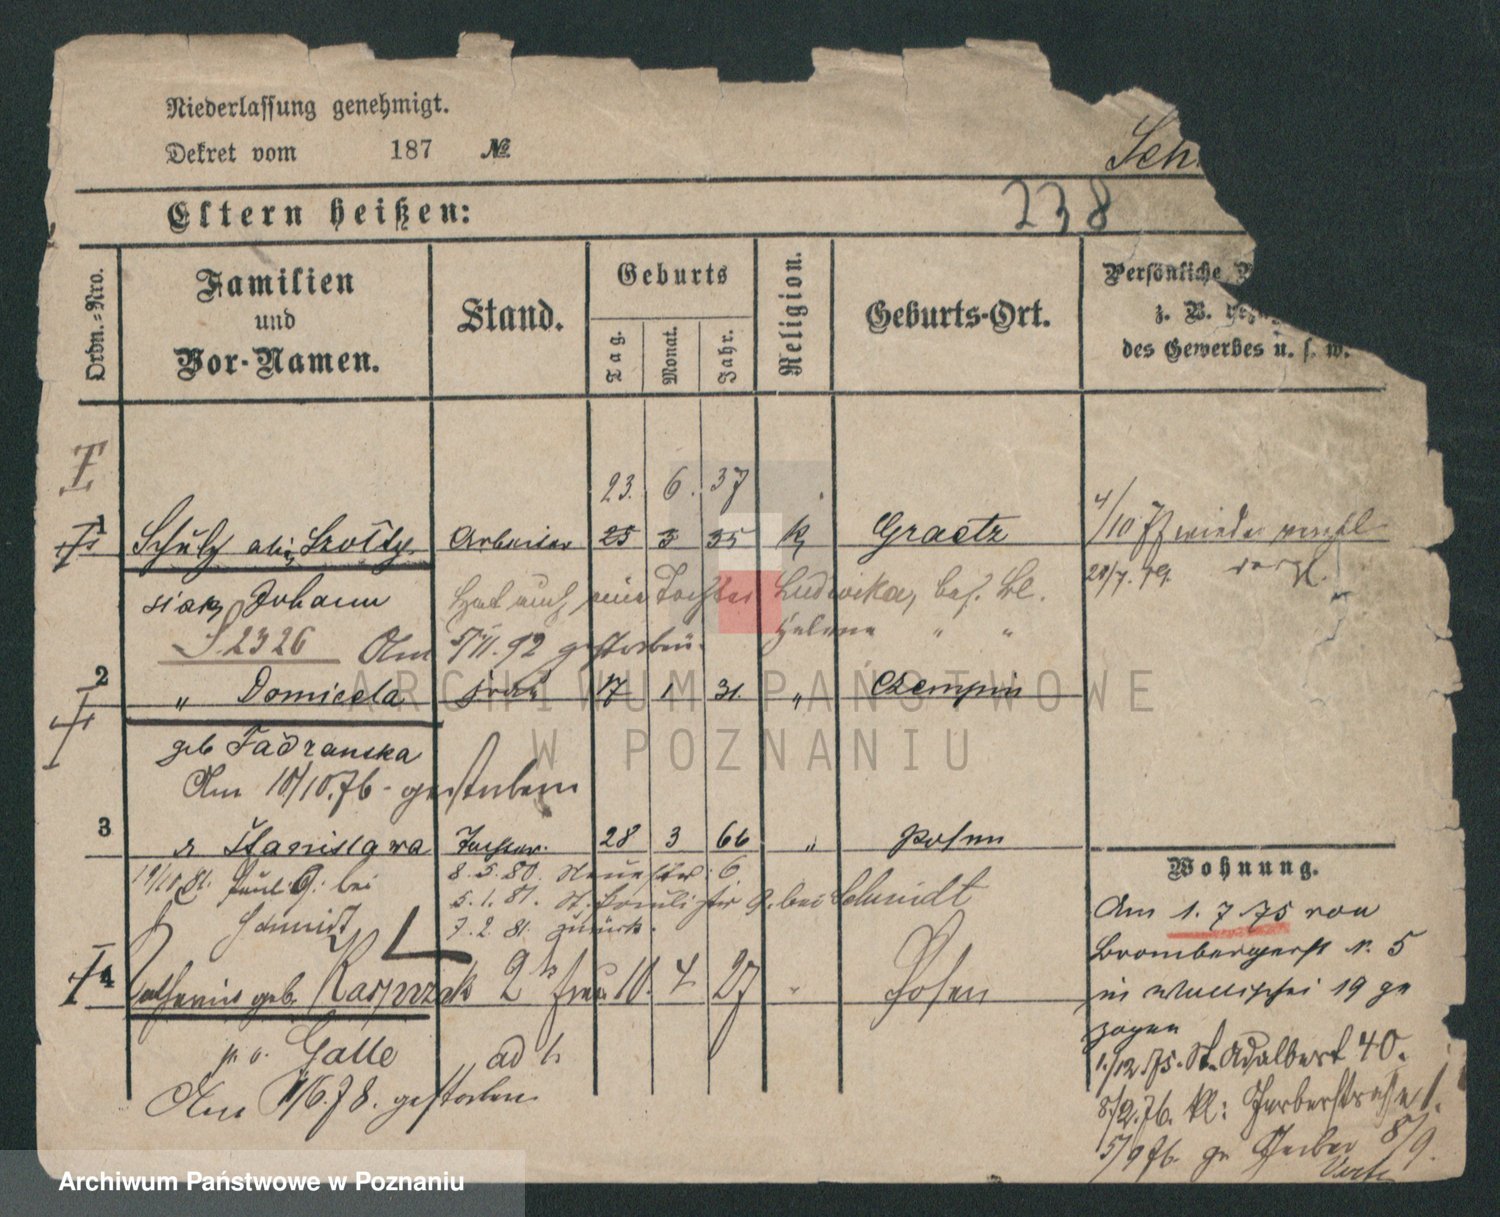 Niederlassung genehmigt.
Dekret vom 187 №
Sch
238
Eltern heißen:
Ordn.-Nro.
Familien
und
Vor-Namen.
Stand.
Geburts
Tag.
Monat.
Jahr.
Religion.
Geburts-Ort.
Persönliche
z. B.
des Gewerbes u. s. w.
I
23. 6. 37
1 Schulz Arbeiter 25 3 35 k Graetz
4/10 77 wieder
Johann Hat auch eine Tochter Ludwika,
21/7. 79.
S 2326 Am 5/11. 92 gestorben
Helene " "
2 " Domicela Frau 17 1 31. " Czempin
geb
Am 10/10. 76 - gestorben
3 Stanislawa Tochter. 28 3 66 " Posen
19/10 81. Paul. 9. bei Schmidt
8. 5. 80. 6
5. 1. 81. 9. bei Schmidt
7. 2. 81. zurück.
4 geb. Kasprzak 2te Frau 10. 4 27 " Posen
Galle ad 1.
Am 1/6. 78. gestorben
Wohnung.
Am 1. 7. 75 von
Brombergerst N. 5
in Wallischei 19 ge
zogen
1./12. 75. St. Adalbert 40.
8/2. 76. kl: Gerberstrasse 1.
5/9 76. 8/9.
ARCHIWUM PAŃSTWOWE
W POZNANIU
Archiwum Państwowe w Poznaniu